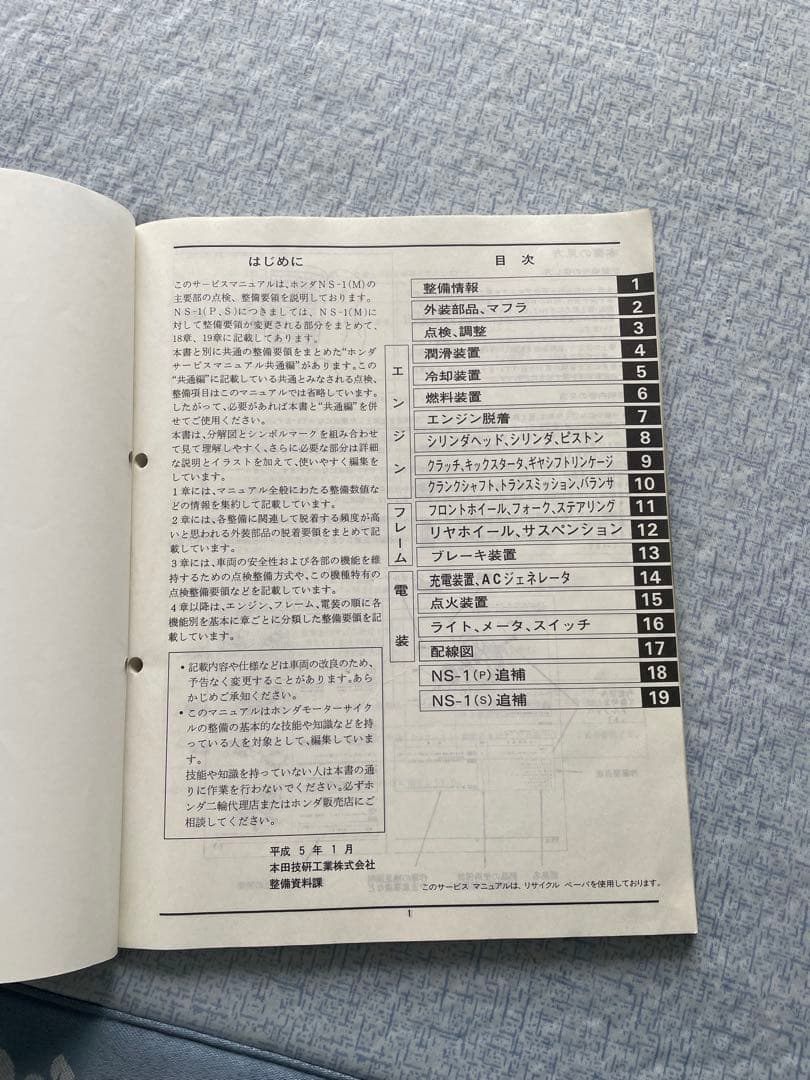 はじめに
このサービスマニュアルは、ホンダNS-1(M)の
主要部の点検、整備要領を説明しております。
NS-1(P、S)につきましては、NS-1(M)に
対して整備要領が変更される部分をまとめて、
18章、19章に記載してあります。
本書と別に共通の整備要領をまとめた“ホンダ
サービスマニュアル共通編”があります。この
“共通編”に記載している共通とみなされる点検、
整備項目はこのマニュアルでは省略しています。
したがって、必要があれば本書と“共通編”を併
せてご使用ください。
本書は、分解図とシンボルマークを組み合わせ
て見て理解しやすく、さらに必要な部分は詳細
な説明とイラストを加えて、使いやすく編集を
しています。
1章には、マニュアル全般にわたる整備数値な
どの情報を集約して記載しています。
2章には、各整備に関連して脱着する頻度が高
いと思われる外装部品の脱着要領をまとめて記
載しています。
3章には、車両の安全性および各部の機能を維
持するための点検整備方式や、この機種特有の
点検整備要領などを記載しています。
4章以降は、エンジン、フレーム、電装の順に各
機能別を基本に章ごとに分類した整備要領を記
載しています。
・記載内容や仕様などは車両の改良のため、
予告なく変更することがあります。あら
かじめご承知ください。
・このマニュアルはホンダモーターサイク
ルの整備の基本的な技能や知識などを持
っている人を対象として、編集していま
す。
技能や知識を持っていない人は本書の通
りに作業を行わないでください。必ずホ
ンダ二輪代理店またはホンダ販売店にご
相談してください。
平成 5 年 1 月
本田技研工業株式会社
整備資料課
目 次
整備情報 1
外装部品、マフラ 2
点検、調整 3
エンジン
潤滑装置 4
冷却装置 5
燃料装置 6
エンジン脱着 7
シリンダヘッド、シリンダ、ピストン 8
クラッチ、キックスタータ、ギヤシフトリンケージ 9
クランクシャフト、トランスミッション、バランサ 10
フレーム
フロントホイール、フォーク、ステアリング 11
リヤホイール、サスペンション 12
ブレーキ装置 13
電装
充電装置、ACジェネレータ 14
点火装置 15
ライト、メータ、スイッチ 16
配線図 17
NS-1(P)追補 18
NS-1(S)追補 19
このサービス マニュアルは、リサイクル ペーパを使用しております。
1